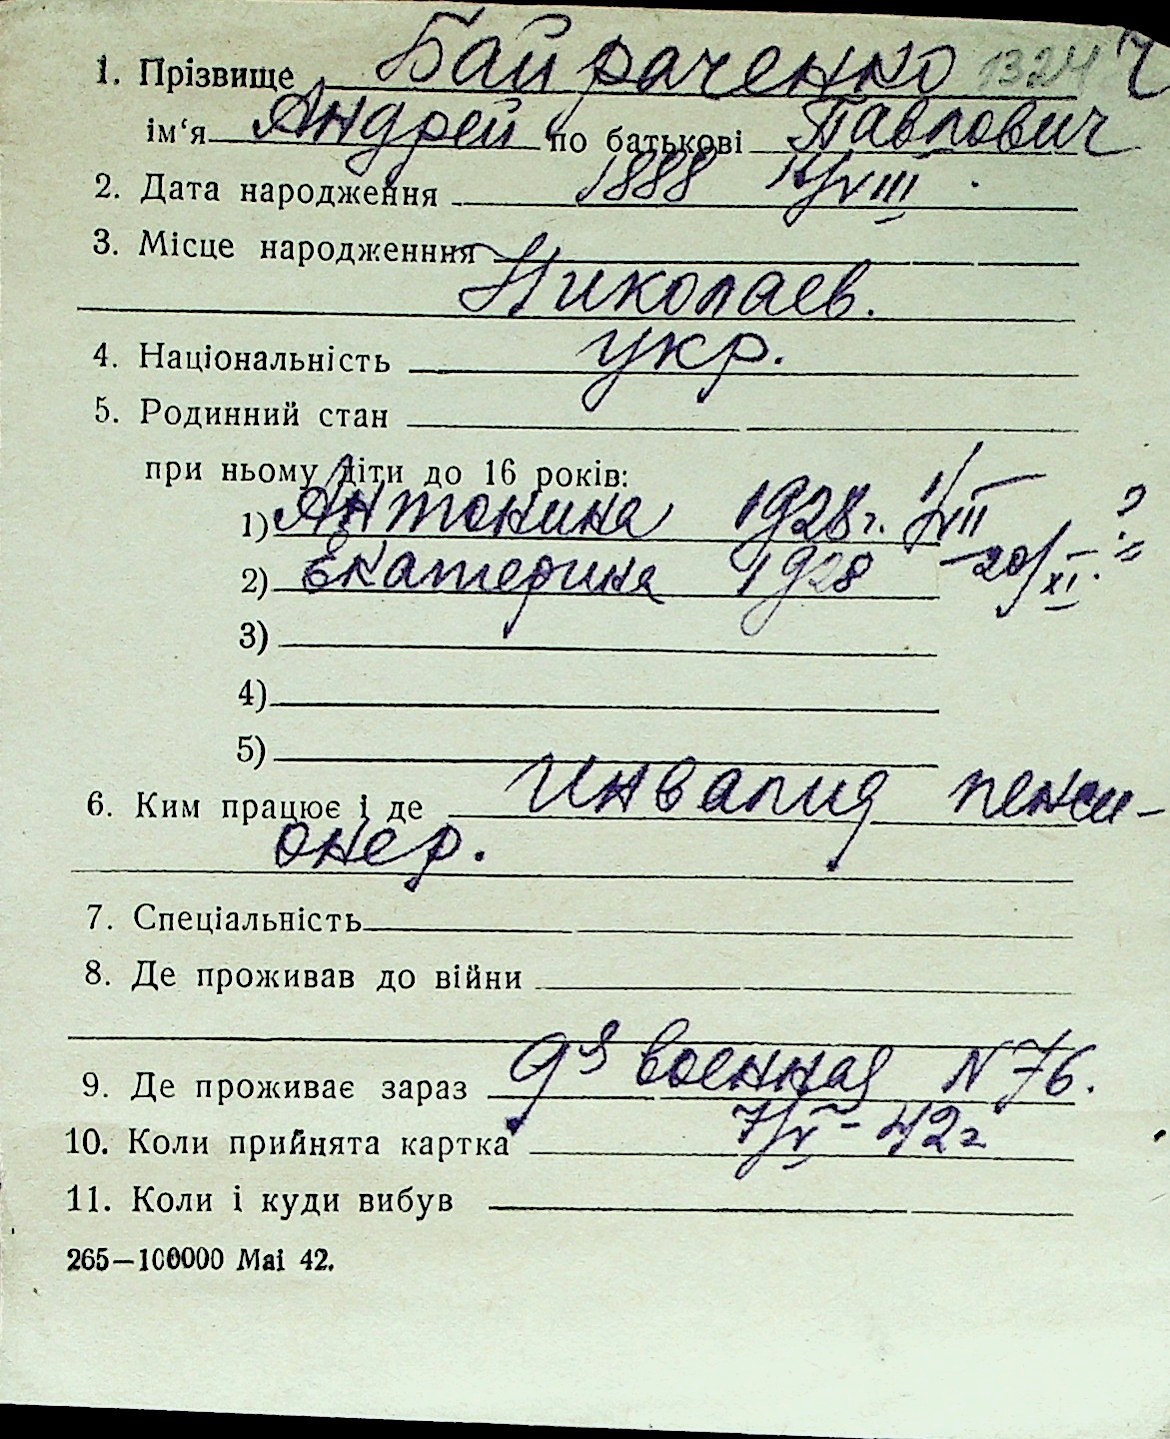 1. Прізвище Байраченко 1324 Ч
ім‘я Андрей по батькові Павлович
2. Дата народження 1888 /VIII
3. Місце народженння
Николаев.
4. Національність укр.
5. Родинний стан
при ньому діти до 16 років:
1) Антонина 1928г. 1/VII ?
2) Екатерина 1928 -20/XI. =
3)
4)
5)
6. Ким працює і де Инвалид пенси-
онер.
7. Спеціальність
8. Де проживав до війни
9. Де проживає зараз военная N 76.
10. Коли прийнята картка 7/V - 42г
11. Коли і куди вибув
265—100000 Mai 42.